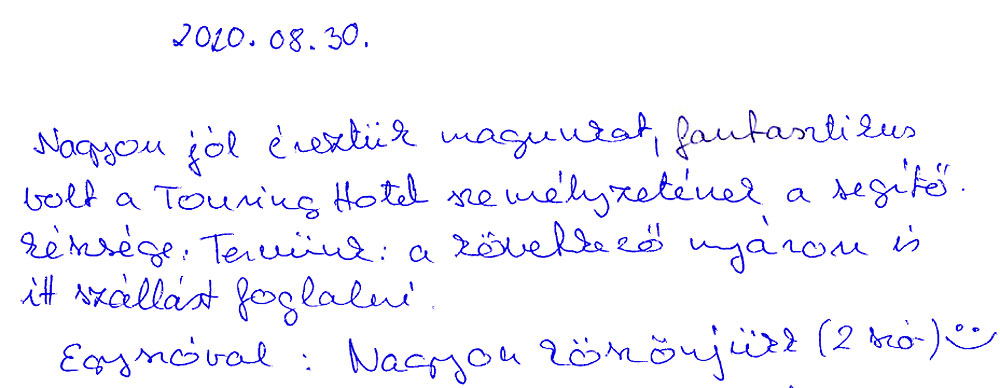 2010. 08. 30.
Nagyon jól éreztük magunkat, fantasztikus
volt a Touring Hotel személyzetének a segítő-
készsége. Tervünk: a következő nyáron is
itt szállást foglalni.
Egyszóval: Nagyon köszönjük (2 szó-) ü